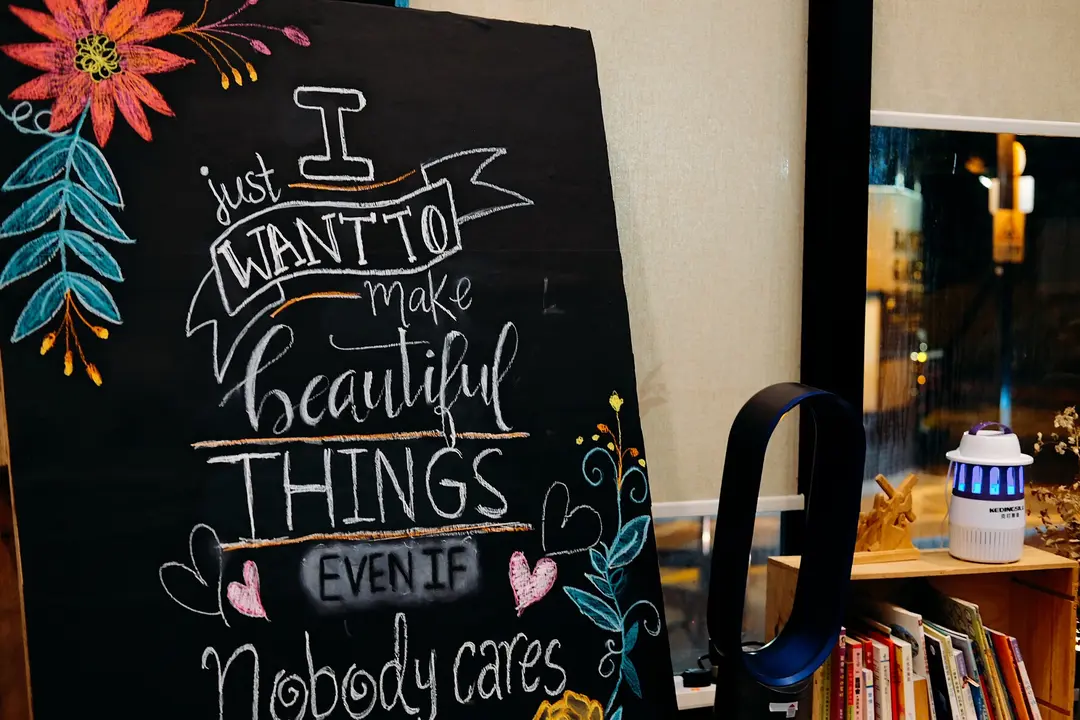 I
just
WANT TO
make
beautiful
THINGS
EVEN IF
Nobody cares